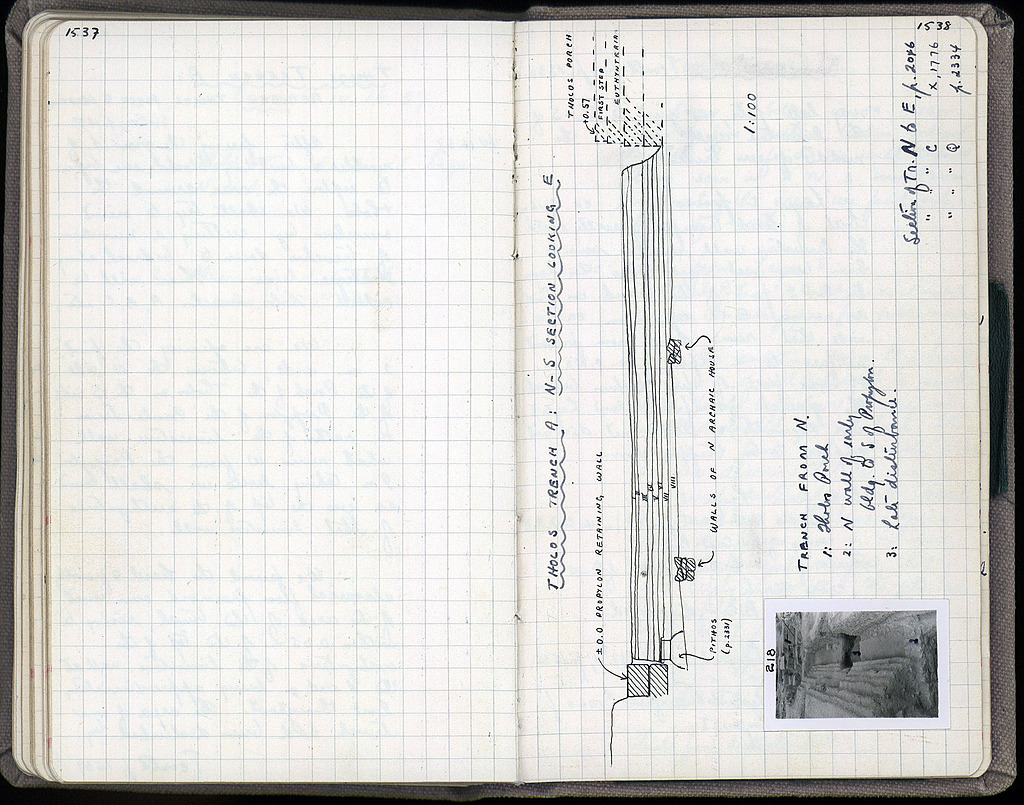 1537
1538
THOLOS TRENCH A: N-S SECTION LOOKING E
± 0.0 PROPYLON RETAINING WALL
THOLOS PORCH
+0.57
FIRST STEP
EUTHYNTERIA
I
II
III
IV
V
VI
VII
VIII
PITHOS
(p. 2331)
WALLS OF N ARCHAIC HOUSE
1:100
TRENCH FROM N.
1: Tholos Porch
2: N wall of early
bldg. to S of Propylon.
3: Late disturbance.
Section of Tr. N to E, p. 2046
" " " C X, 1776
" " " Q p. 2334
218